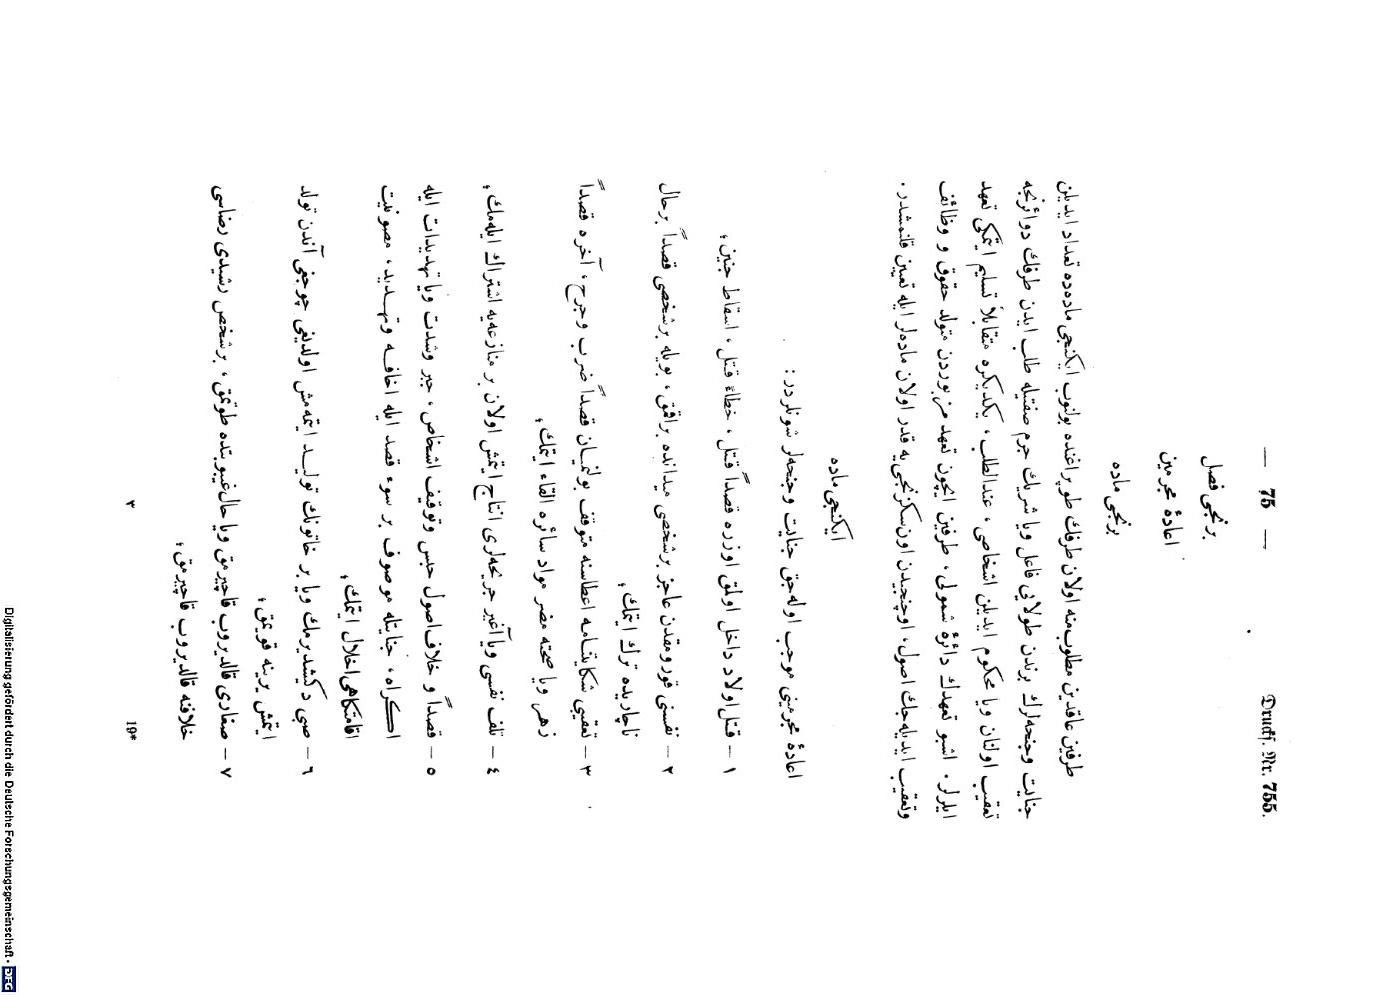 — 75 —
Druckf. Nr. 755.
برنجی فصل
اعادهٔ مجرمین
برنجی ماده
طرفین عاقدین مطلوب‌منه اولان طرفك طوپراغنده بولنوب ایكنجی ماده‌ده تعداد ایدیلن
جنایت وجنحه‌لرك برندن طولایی فاعل ویا شریك جرم صفتیله طلب ایدن طرفك دوائرنجه
تعقیب اولنان ویا محكوم ایدیلن اشخاصی، عندالطلب، یكدیكره متقابلاً تسلیم ایتمكی تعهد
ایلرلر. اشبو تعهدك دائرهٔ شمولی، طرفین ایچون تعهد مزبوردن متولد حقوق و وظائف
وتعقیب ایدیله‌جك اصول، اوچنجیدن اون‌سكزنجی‌یه قدر اولان ماده‌لر ایله تعیین قلنمشدر.
ایكنجی ماده
اعادهٔ مجرمینی موجب اوله‌جق جنایت وجنحه‌لر شونلردر:
١ — قتل‌اولاد داخل اولمق اوزره قصداً قتل، خطاءً قتل، اسقاط جنین،
٢ — نفسنی قورومقدن عاجز برشخصی میدانده براقمق، بویله برشخصی قصداً برحال
ناچاریده ترك ایتمك،
٣ — تعقیبی شكایتنامه اعطاسنه متوقف بولنمیان قصداً ضرب وجرح، آخره قصداً
زهر ویا صحته مضر مواد سائره القاء ایتمك،
٤ — تلف نفسی ویا آغیر جریحه‌لری انتاج ایتمش اولان بر منازعه‌یه اشتراك ایله‌مك،
٥ — قصداً و خلاف‌اصول حبس وتوقیف اشخاص، جبر وشدت ویا تهدیدات ایله
اكراه، جنایتله موصوف بر سوء قصد ایله اخافه وتهدید، مصونیت
اقامتكاهی اخلال ایتمك،
٦ — صبی دكیشدیرمك ویا بر خاتونك تولید ایتمه‌مش اولدیغی چوجغی آندن تولد
ایتمش یرینه قویمق،
٧ — صغاری قالدیروب قاچیرمق ویا حال‌غیبوبتده طوتمق، برشخص رشیدی رضاسی
خلافنه قالدیروب قاچیرمق،
٣
19*
Digitalisierung gefördert durch die Deutsche Forschungsgemeinschaft - DFG